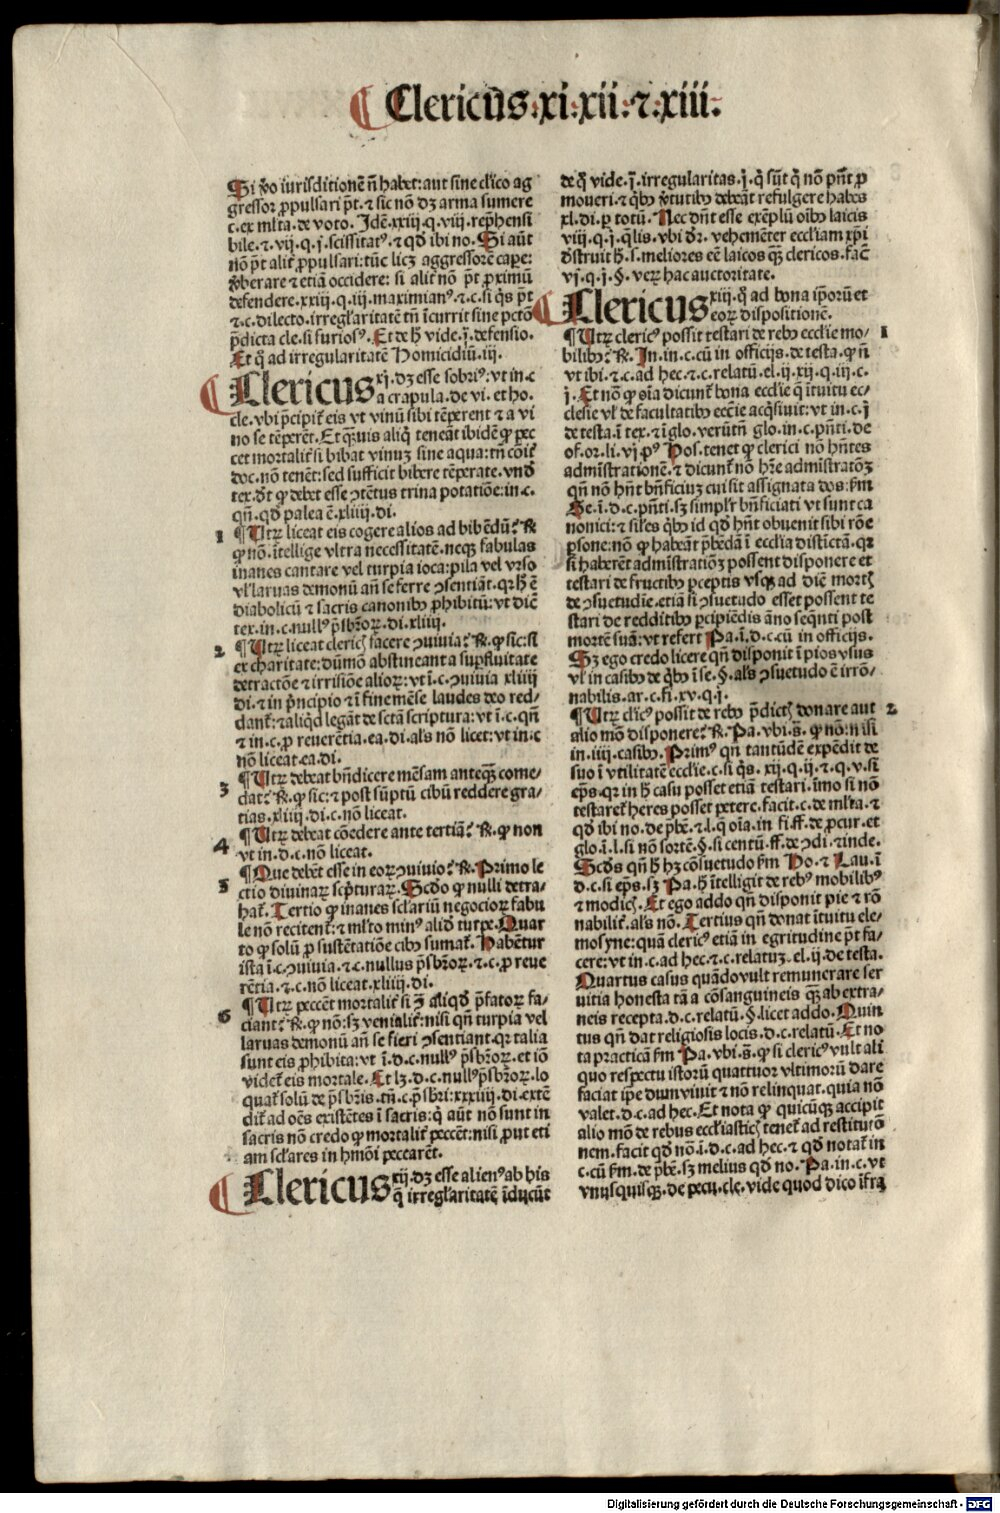 Clericus.xi.xii.⁊.xiii.
Si v̄o iurisditionē n̄ habet: aut sine cl̄ico ag
gressor ꝓpulsari p̄t. ⁊ sic nō dꝫ arma sumere
c. ex ml̄ta. de voto. Idē. xxiij. q. viij. rep̄hensi
bile. ⁊. vij. q. j. scissitatꝰ. ⁊ qđ ibi no. Si aūt
nō p̄t alit̄ ꝓpulsari: tūc licꝫ aggressorē cape:
v̄berare ⁊ etiā occidere: si alit̄ nō p̄t ꝓximū
defendere. xxiij. q. iij. maximianꝰ. ⁊. c. si q̄s p̄t
⁊. c. dilecto. irregl̄aritatē tn̄ ī currit sine pctō
p̄dicta cle. si furiosꝰ. Et de h̄ vide. j̄. defensio.
Et q̄ ad irregularitatē Homicidiū. iij.
Clericus xj. dꝫ esse sobriꝰ: vt in. c
a crapula. de vi. et ho.
cle. vbi p̄cipit̄ eis vt vinū sibi tēperent ⁊ a vi
no se tēperēt. Et qꝫuis aliq̄ teneāt ibidē ꝙ pec
cet mortalit̄ si bibat vinuꝫ sine aqua: tn̄ cōit̄
doc. nō tenēt: sed sufficit bibere tēperate. vnđ
tex. đt ꝙ debet esse ꝯtētus trina potatiōe: in. c.
qn̄. qđ palea ē. xliiij. di.
1 ¶ Utꝝ liceat eis cogere alios ad bibēdū? ℟.
ꝙ nō. ītellige vltra necessitatē. neqꝫ fabulas
inanes cantare vel turpia ioca: pila vel vrso
vl̄ laruas demonū an̄ se ferre ꝯsentiāt. qꝛ h̄ ē
diabolicū ⁊ sacris canonibꝰ ꝓhibitū: vt dic̄
tex. in. c. nullꝰ p̄sbr̄oꝝ. di. xliiij.
2 ¶ Utꝝ liceat clericꝭ facere ꝯuiuia? ℟. ꝙ sic: si
ex charitate: dūmō abstineant a suꝑfluitate
detractōe ⁊ irrisiōe alioꝝ: vt ī. c. ꝯuiuia xliiij
di. ⁊ in p̄ncipio ⁊ ī fine mēse laudes deo red-
dant̄: ⁊ aliqđ legāt de sctā scriptura: vt ī. c. qn̄
⁊ in. c. ꝓ reuerētia. ea. di. al̄s nō licet: vt in. c
nō liceat. ea. di.
3 ¶ Utꝝ debeat bn̄dicere mēsam anteqꝫ come-
dat? ℟. ꝙ sic: ⁊ post sūptū cibū reddere gra-
tias. xliiij. di. c. nō liceat.
4 ¶ Utꝝ debeat cōedere ante tertiā? ℟. ꝙ non
vt in. d. c. nō liceat.
5 ¶ Que debēt esse in eoꝝ ꝯuiuio? ℟. Primo le
ctio diuinaꝝ sc̄pturaꝝ. Scđo ꝙ nulli detra-
hat̄. Tertio ꝙ inanes scl̄ariū negocioꝝ fabu
le nō recitent̄: ⁊ ml̄to minꝰ aliđ turpe. Quar
to ꝙ solū ꝓ sustētatiōe cibꝰ sumat̄. Habētur
ista ī. c. ꝯuiuia. ⁊. c. nullus p̄sbr̄oꝝ. ⁊. c. ꝓ reue
rētia. ⁊. c. nō liceat. xliiij. di.
6 ¶ Utꝝ peccēt mortalit̄ si ꝯ̄ aliqđ p̄fatoꝝ fa-
ciant? ℟. ꝙ nō: sꝫ venialit̄: nisi qn̄ turpia vel
laruas demonū an̄ se fieri ꝯsentiant. qꝛ talia
sunt eis ꝓhibita: vt ī. d. c. nullꝰ p̄sbr̄oꝝ. et iō
videt̄ eis mortale. Et lꝫ. d. c. nullꝰ p̄sbr̄oꝝ. lo
quat̄ solū de p̄sbr̄is. tn̄. c. p̄sbr̄i: xxxiiij. di. extē
dit̄ ad oēs existētes ī sacris: q̄ aūt nō sunt in
sacris nō credo ꝙ mortalit̄ peccēt: nisi ꝓut eti
am scl̄ares in hmōi peccarēt.
Clericus xij. dꝫ esse alienꝰ ab his
q̄ irregl̄aritatē īducūt
de q̄ vide. j̄. irregularitas. j. q̄ sūt q̄ nō pn̄t ꝓ
moueri. ⁊ qͥbꝰ v̄tutibꝰ debeāt refulgere habes
xl. di. ꝑ totū. Nec dn̄t esse exēplū oībꝰ laicis
viij. q. j. q̄lis. vbi đr. vehemēter eccl̄iam xp̄i
đstruit h̄. s. meliores eē laicos qꝫ clericos. fac̄
vj. q. j. §. veꝝ hac auctoritate.
Clericus xiij. q̄ ad bona ip̄oꝝ et
eoꝝ dispositionē.
¶ Utꝝ clericꝰ possit testari de rebꝰ eccl̄ie mo- 1
bilibꝰ? ℟. In. in. c. cū in officijs. de testa. ꝙ n̄
vt ibi. ⁊. c. ad hec. ⁊. c. relatū. el. ij. xij. q. iij. c.
j. Et nō ꝙ oīa dicunt̄ bona eccl̄ie q̄ ītuitu ec-
clesie vl̄ de facultatibꝰ eccīe acq̄siuit: vt in. c. j
de testa. ī tex. ⁊ ī glo. verūtn̄ glo. in. c. p̄nti. de
of. or. li. vj. pꝰ Pos. tenet ꝙ clerici nō hn̄tes
admīstrationē. ⁊ dicunt̄ nō hr̄e admīstratōꝫ
qn̄ nō hn̄t bn̄ficiuꝫ cui sit assignata dos: fm̄
Ge. ī. d. c. p̄nti. sꝫ simpl̄r bn̄ficiati vt sunt ca
nonici: ⁊ sil̄es qͥbꝰ id qđ hn̄t obuenit sibi rōe
ꝑsone: nō ꝙ habeāt p̄bēdā ī eccl̄ia distīctā. qꝛ
si haberēt admīstratiōꝫ possent disponere et
testari de fructibꝰ ꝑceptis vsqꝫ ad diē mortꝭ
de ꝯsuetudīe. etiā si ꝯsuetudo esset possent te
stari de redditibꝰ ꝑcipiēdis āno seq̄nti post
mortē suā: vt refert Pa. ī. d. c. cū in officijs.
Sꝫ ego credo licere qn̄ disponit ī pios vsus
vl̄ in casibꝰ de qͥbꝰ ī se. §. al̄s ꝯsuetudo ē irrō-
nabilis. ar. c. fi. xv. q. j.
¶ Utꝝ cl̄icꝰ possit de rebꝰ p̄dictꝭ donare aut 2
alio mō disponere? ℟. Pa. vbi. s̄. ꝙ nō: nisi
in. iiij. casibꝰ. Primꝰ qn̄ tantūdē expēdit de
suo ī vtilitatē eccl̄ie. c. si q̄s. xij. q. ij. ⁊. q. v. si
ep̄s. qꝛ in h̄ casu posset etiā testari. īmo si nō
testaret̄ heres posset petere. facit. c. de ml̄ta. ⁊
qđ ibi no. de p̄bē. ⁊. l. q̄ oīa. in fi. ff. de ꝓcur. et
glo. ī. l. si nō sortē. §. si centū. ff. de ꝯdi. ⁊ inde.
Scđs qn̄ h̄ hꝫ cōsuetudo fm̄ Ho. ⁊ Lau. ī
d. c. si ep̄s. sꝫ Pa. h̄ ītelligit de rebꝰ mobilibꝰ
⁊ modicꝭ. Et ego addo qn̄ disponit pie ⁊ rō
nabilit̄. al̄s nō. Tertius qn̄ donat ītuitu ele-
mosyne: quā clericꝰ etiā in egritudine p̄t fa-
cere: vt in. c. ad hec. ⁊. c. relatuꝫ. el. ij. de testa.
Quartus casus quādo vult remunerare ser
uitia honesta tā a cōsanguineis qꝫ ab extra-
neis recepta. d. c. relatū. §. licet addo. Quin
tus qn̄ dat religiosis locis. d. c. relatū. Et no
ta practicā fm̄ Pa. vbi. s̄. ꝙ si clericꝰ vult ali
quo respectu istorū quattuor vltimorū dare
faciat ip̄e dum viuit ⁊ nō relinquat. quia nō
valet. d. c. ad hec. Et nota ꝙ quicūqꝫ accipit
alio mō de rebus eccl̄iasticꝭ tenet̄ ad restitutō
nem. facit qđ nō. ī. d. c. ad hec. ⁊ qđ notat̄ in
c. cū fm̄. de p̄bē. sꝫ melius qđ no. Pa. in. c. vt
vnusquisqꝫ. de pecu. cle. vide quod dico īfra
Digitalisierung gefördert durch die Deutsche Forschungsgemeinschaft - DFG